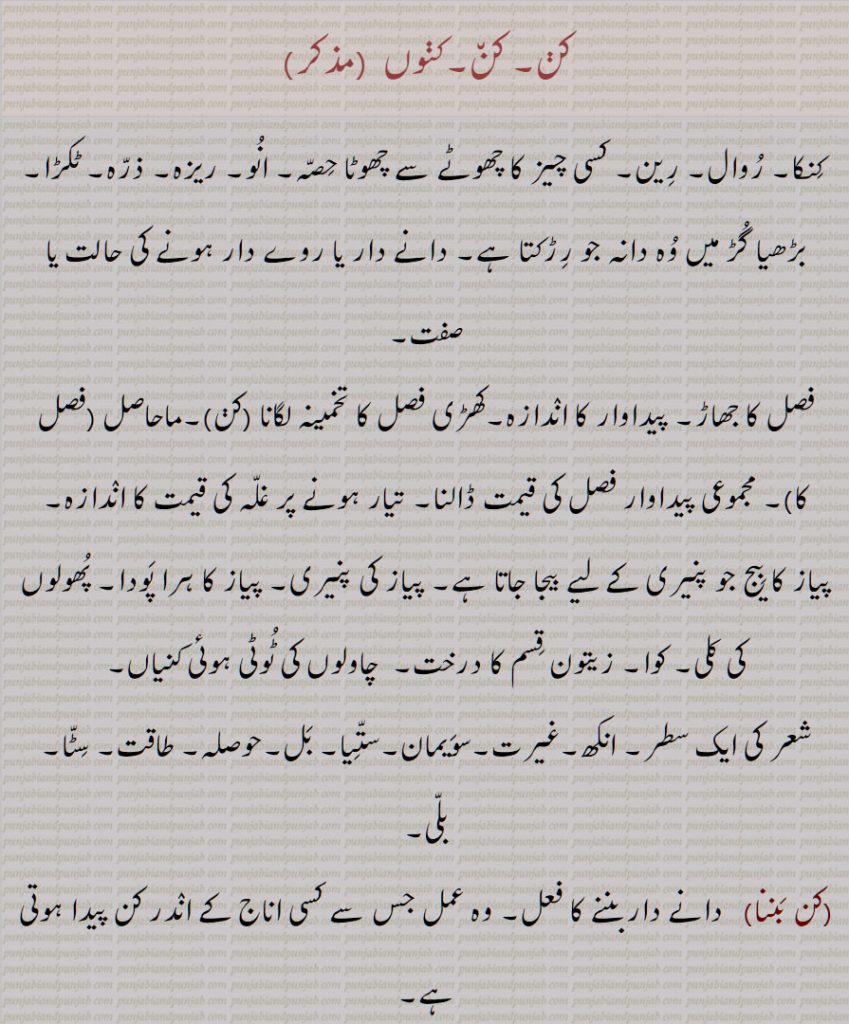 کݨ۔ کنّ۔ کݨوں (مذکر)
کِنکا۔ رُوال۔ رِین۔ کسی چیز کا چھوٹے سے چھوٹا حِصّہ۔ انُو۔ ریزہ۔ ذرّہ۔ ٹکڑا۔
بڑھیا گُڑ میں وُہ دانہ جو رِڑکتا ہے۔ دانے دار یا روے دار ہونے کی حالت یا
صفت۔
فصل کا جھاڑ۔ پیداوار کا انْدازہ۔ کھڑی فصل کا تخمینہ لگانا (کݨ)۔ ماحاصل (فصل
کا)۔ مجموعی پیداوار فصل کی قیمت ڈالنا۔ تیار ہونے پر غلّہ کی قیمت کا انْدازہ۔
پیاز کا بِیج جو پنیری کے لیے بیجا جاتا ہے۔ پیاز کی پنیری۔ پیاز کا ہرا پَودا۔ پُھولوں
کی کَلی۔ کوا۔ زیتون قِسم کا درخت۔ چاولوں کی ٹُوٹی ہوئی کنیاں۔
شعر کی ایک سطر۔ انکھ۔ غیرت۔ سوَیمان۔ ستِّیا۔ بَل۔ حوصلہ۔ طاقت۔ سِٹّا۔
بلّی۔
(کن بَننا) دانے دار بننے کا فعل۔ وہ عمل جس سے کسی اناج کے انْدر کن پیدا ہوتی
ہے۔